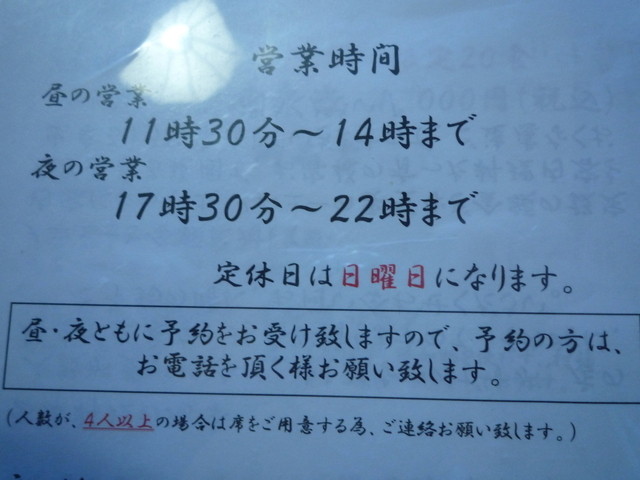 営業時間
昼の営業
11時30分～14時まで
夜の営業
17時30分～22時まで
定休日は日曜日になります。
昼・夜ともに予約をお受け致しますので、予約の方は、
お電話を頂く様お願い致します。
(人数が、4人以上の場合は席をご用意する為、ご連絡お願い致します。)